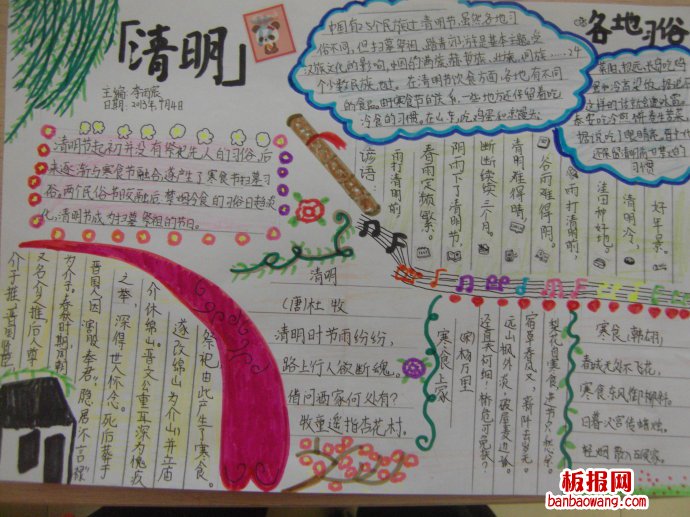 「清明」
主编：李雨宸
日期：2015年4月4日
清明节起初并没有祭祀先人的习俗，后
来逐渐与寒食节融合，逐产生了寒食节扫墓习
俗。两个民俗节段融合，禁烟冷食的习俗日趋淡
化，清明节成为扫墓祭祖的节日。
中国有25个民族过清明节，虽然各地习
俗不同，但扫墓祭祖、踏青郊游是基本主题。受
汉族文化的影响，中国的满族、赫哲族、壮族
24
个少数民族，也过。在清明节饮食方面，各地有不同
的食品。由寒食节的关系，一些地方还保留着吃
冷食的习惯。在山东，吃鸡蛋和冷馒头
各地习俗
习惯
谚语：
雨打清明前，
春雨定频繁。
阴雨下了清明节，
断断续续三个月。
清明难得晴，
谷雨难得阴。
雨打清明前，
洼田种好地。
清明冷，
好年景。
清明
（唐）杜牧
清明时节雨纷纷，
路上行人欲断魂。
借问酒家何处有？
牧童遥指杏花村。
寒食上冢
（宋）杨万里
远山枫外淡，破屋麦边孤。
宿草春风又，新阡去岁无。
梨花自寒食，
寒食（韩翃）
春城无处不飞花，
寒食东风御柳斜。
日暮汉宫传蜡烛，
轻烟散入五侯家。
介子推，晋国
又名介之推，后人尊
为介子。春秋时期
晋国人，因“割股奉君”，隐居“不言禄”
之举，深得世人怀念。死后葬于
介休绵山。晋文公重耳深为愧疚，
遂改绵山为介山，并立庙
祭祀，由此产生了寒食。
板报网
banbaowang.com